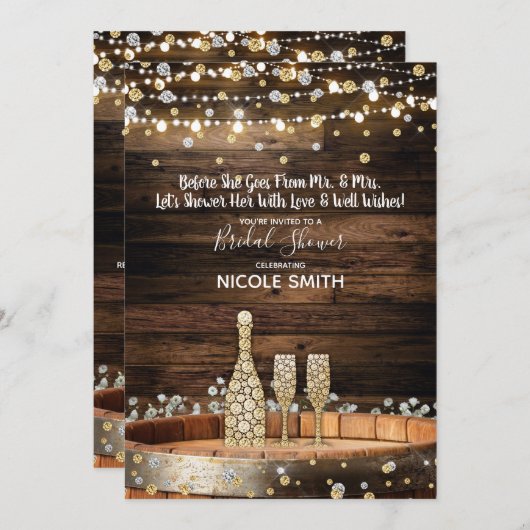 Before She Goes From Mr. & Mrs.
Let's Shower Her With Love & Well Wishes!
YOU'RE INVITED TO A
Bridal Shower
CELEBRATING
NICOLE SMITH
RE